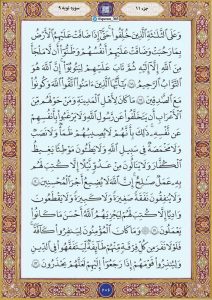 جزء ۱۱
سوره توبه ۹
وَعَلَى الثَّلَاثَةِ الَّذِينَ خُلِّفُوا حَتَّىٰ إِذَا ضَاقَتْ عَلَيْهِمُ الْأَرْضُ
بِمَا رَحُبَتْ وَضَاقَتْ عَلَيْهِمْ أَنْفُسُهُمْ وَظَنُّوا أَنْ لَا مَلْجَأَ
مِنَ اللَّهِ إِلَّا إِلَيْهِ ثُمَّ تَابَ عَلَيْهِمْ لِيَتُوبُوا إِنَّ اللَّهَ هُوَ
التَّوَّابُ الرَّحِيمُ ۝ يَا أَيُّهَا الَّذِينَ آمَنُوا اتَّقُوا اللَّهَ وَكُونُوا
مَعَ الصَّادِقِينَ ۝ مَا كَانَ لِأَهْلِ الْمَدِينَةِ وَمَنْ حَوْلَهُمْ مِنَ
الْأَعْرَابِ أَنْ يَتَخَلَّفُوا عَنْ رَسُولِ اللَّهِ وَلَا يَرْغَبُوا بِأَنْفُسِهِمْ
عَنْ نَفْسِهِ ذَٰلِكَ بِأَنَّهُمْ لَا يُصِيبُهُمْ ظَمَأٌ وَلَا نَصَبٌ
وَلَا مَخْمَصَةٌ فِي سَبِيلِ اللَّهِ وَلَا يَطَئُونَ مَوْطِئًا يَغِيظُ
الْكُفَّارَ وَلَا يَنَالُونَ مِنْ عَدُوٍّ نَيْلًا إِلَّا كُتِبَ لَهُمْ
بِهِ عَمَلٌ صَالِحٌ إِنَّ اللَّهَ لَا يُضِيعُ أَجْرَ الْمُحْسِنِينَ ۝
وَلَا يُنْفِقُونَ نَفَقَةً صَغِيرَةً وَلَا كَبِيرَةً وَلَا يَقْطَعُونَ
وَادِيًا إِلَّا كُتِبَ لَهُمْ لِيَجْزِيَهُمُ اللَّهُ أَحْسَنَ مَا كَانُوا
يَعْمَلُونَ ۝ وَمَا كَانَ الْمُؤْمِنُونَ لِيَنْفِرُوا كَافَّةً
فَلَوْلَا نَفَرَ مِنْ كُلِّ فِرْقَةٍ مِنْهُمْ طَائِفَةٌ لِيَتَفَقَّهُوا فِي الدِّينِ
وَلِيُنْذِرُوا قَوْمَهُمْ إِذَا رَجَعُوا إِلَيْهِمْ لَعَلَّهُمْ يَحْذَرُونَ ۝